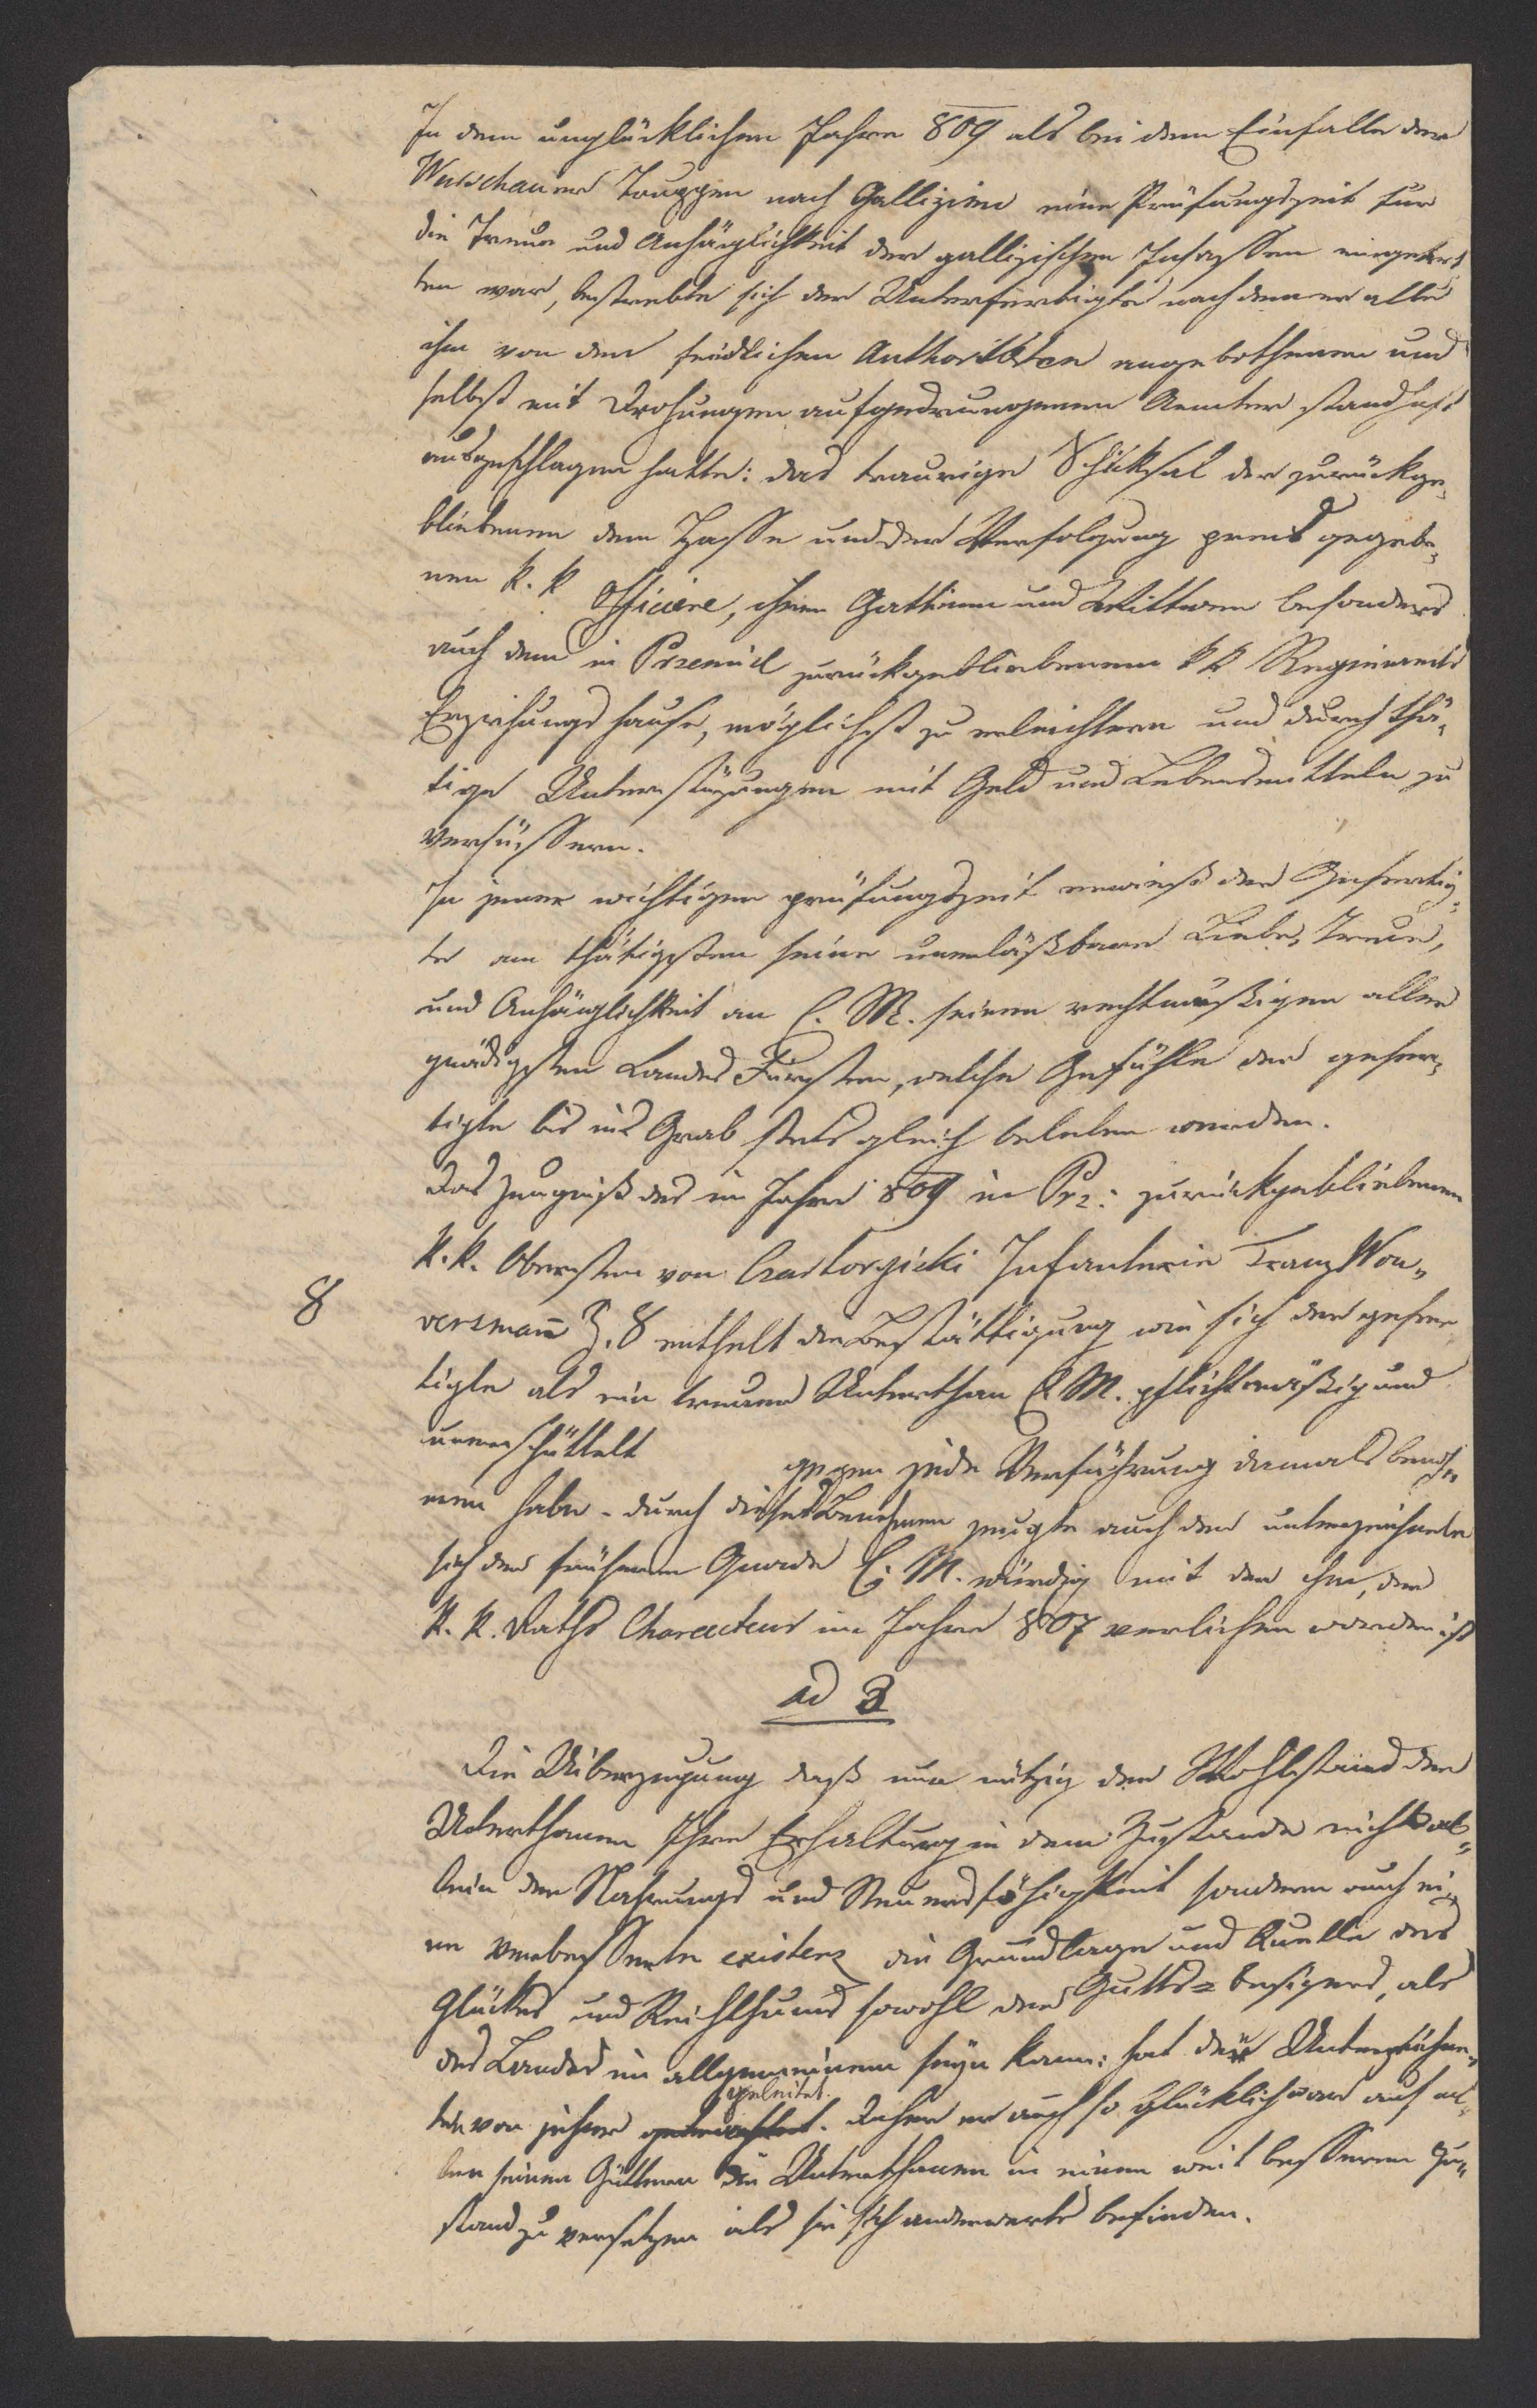 In dem unglücklichen Jahre 809 als bei dem Einfalle der
Warschauer Truppen nach Gallizien eine Prüfungszeit für
die Treue und Anhänglichkeit der gallizischen Insassen eingetret
ten war, bestrebte sich der Unterfertigte nach dem er alle
ihm von den feindlichen Authoritäten angebothenen und
selbst mit Drohungen aufgedrungenen Aemter standhaft
ausgeschlagen hatte: das traurige Schiksal der zurückge„
bliebenen dem Hasse und der Verfolgung preis gegebe„
nen k. k Officiere, ihren Gattinen und Wittwen besonders
auch dem in Przemisl zurückgebliebenem kk Regiments
Erziehungs hause, möglichst zu erleichtern und durch thä„
tige Unterstüzungen mit Geld und Lebensmitteln zu
versüssern.
In jener wichtigen prüfungszeit erwieß der Gefertig„
te am thätigsten seine unerläßbare Liebe, Treue,
und Anhänglichkeit an E. M. seinen rechtmäßigen aller
gnädigsten Landes Fürsten, welche Gefühle den gefer„
tigte bis ins Grab stets gleich beleben werden.
Das Zeugniß des im Jahre 809 in Prz: zurückgebliebenen
k. k. Obersten von Czartorgiski Infanterie Franz Won„
8
versmann Z. 8 enthelt die Bestättigung wie sich der gefer
tigte als ein treuer Unterthan E. M. pflichtmäßig und
unerschüttelt gegen jede Verführung damals benoh„
men habe - durch dieses Benehmen zeugte auch der unterzeichnete
sich der früheren Gnade E. M. würdig mit der ihm, der
k. k. Raths Characteur im Jahre 807 verliehen worden ist
ad 3
Die Uiberzeugung daß nur einzig der Wohlstand der
Unterthanen Ihre Erhaltung in dem Zustande nicht al„
lein der Nahrungs und Steuersfähigkeit sondern auch ei„
ne verbesserte existenz die Grundlage und Quelle des
Glückes und Reichthums sowohl des Gutts= besizers, als
des Landes im allgemeinem seyn kann: hat den Unterzeichne„
ten von jeher geleitet. Daher er auch so glücklich war auf al„
len seinen Güttern die Unterthanen in einen weit besseren Zu„
stand zu versetzen als sie sich anderwerts befinden.